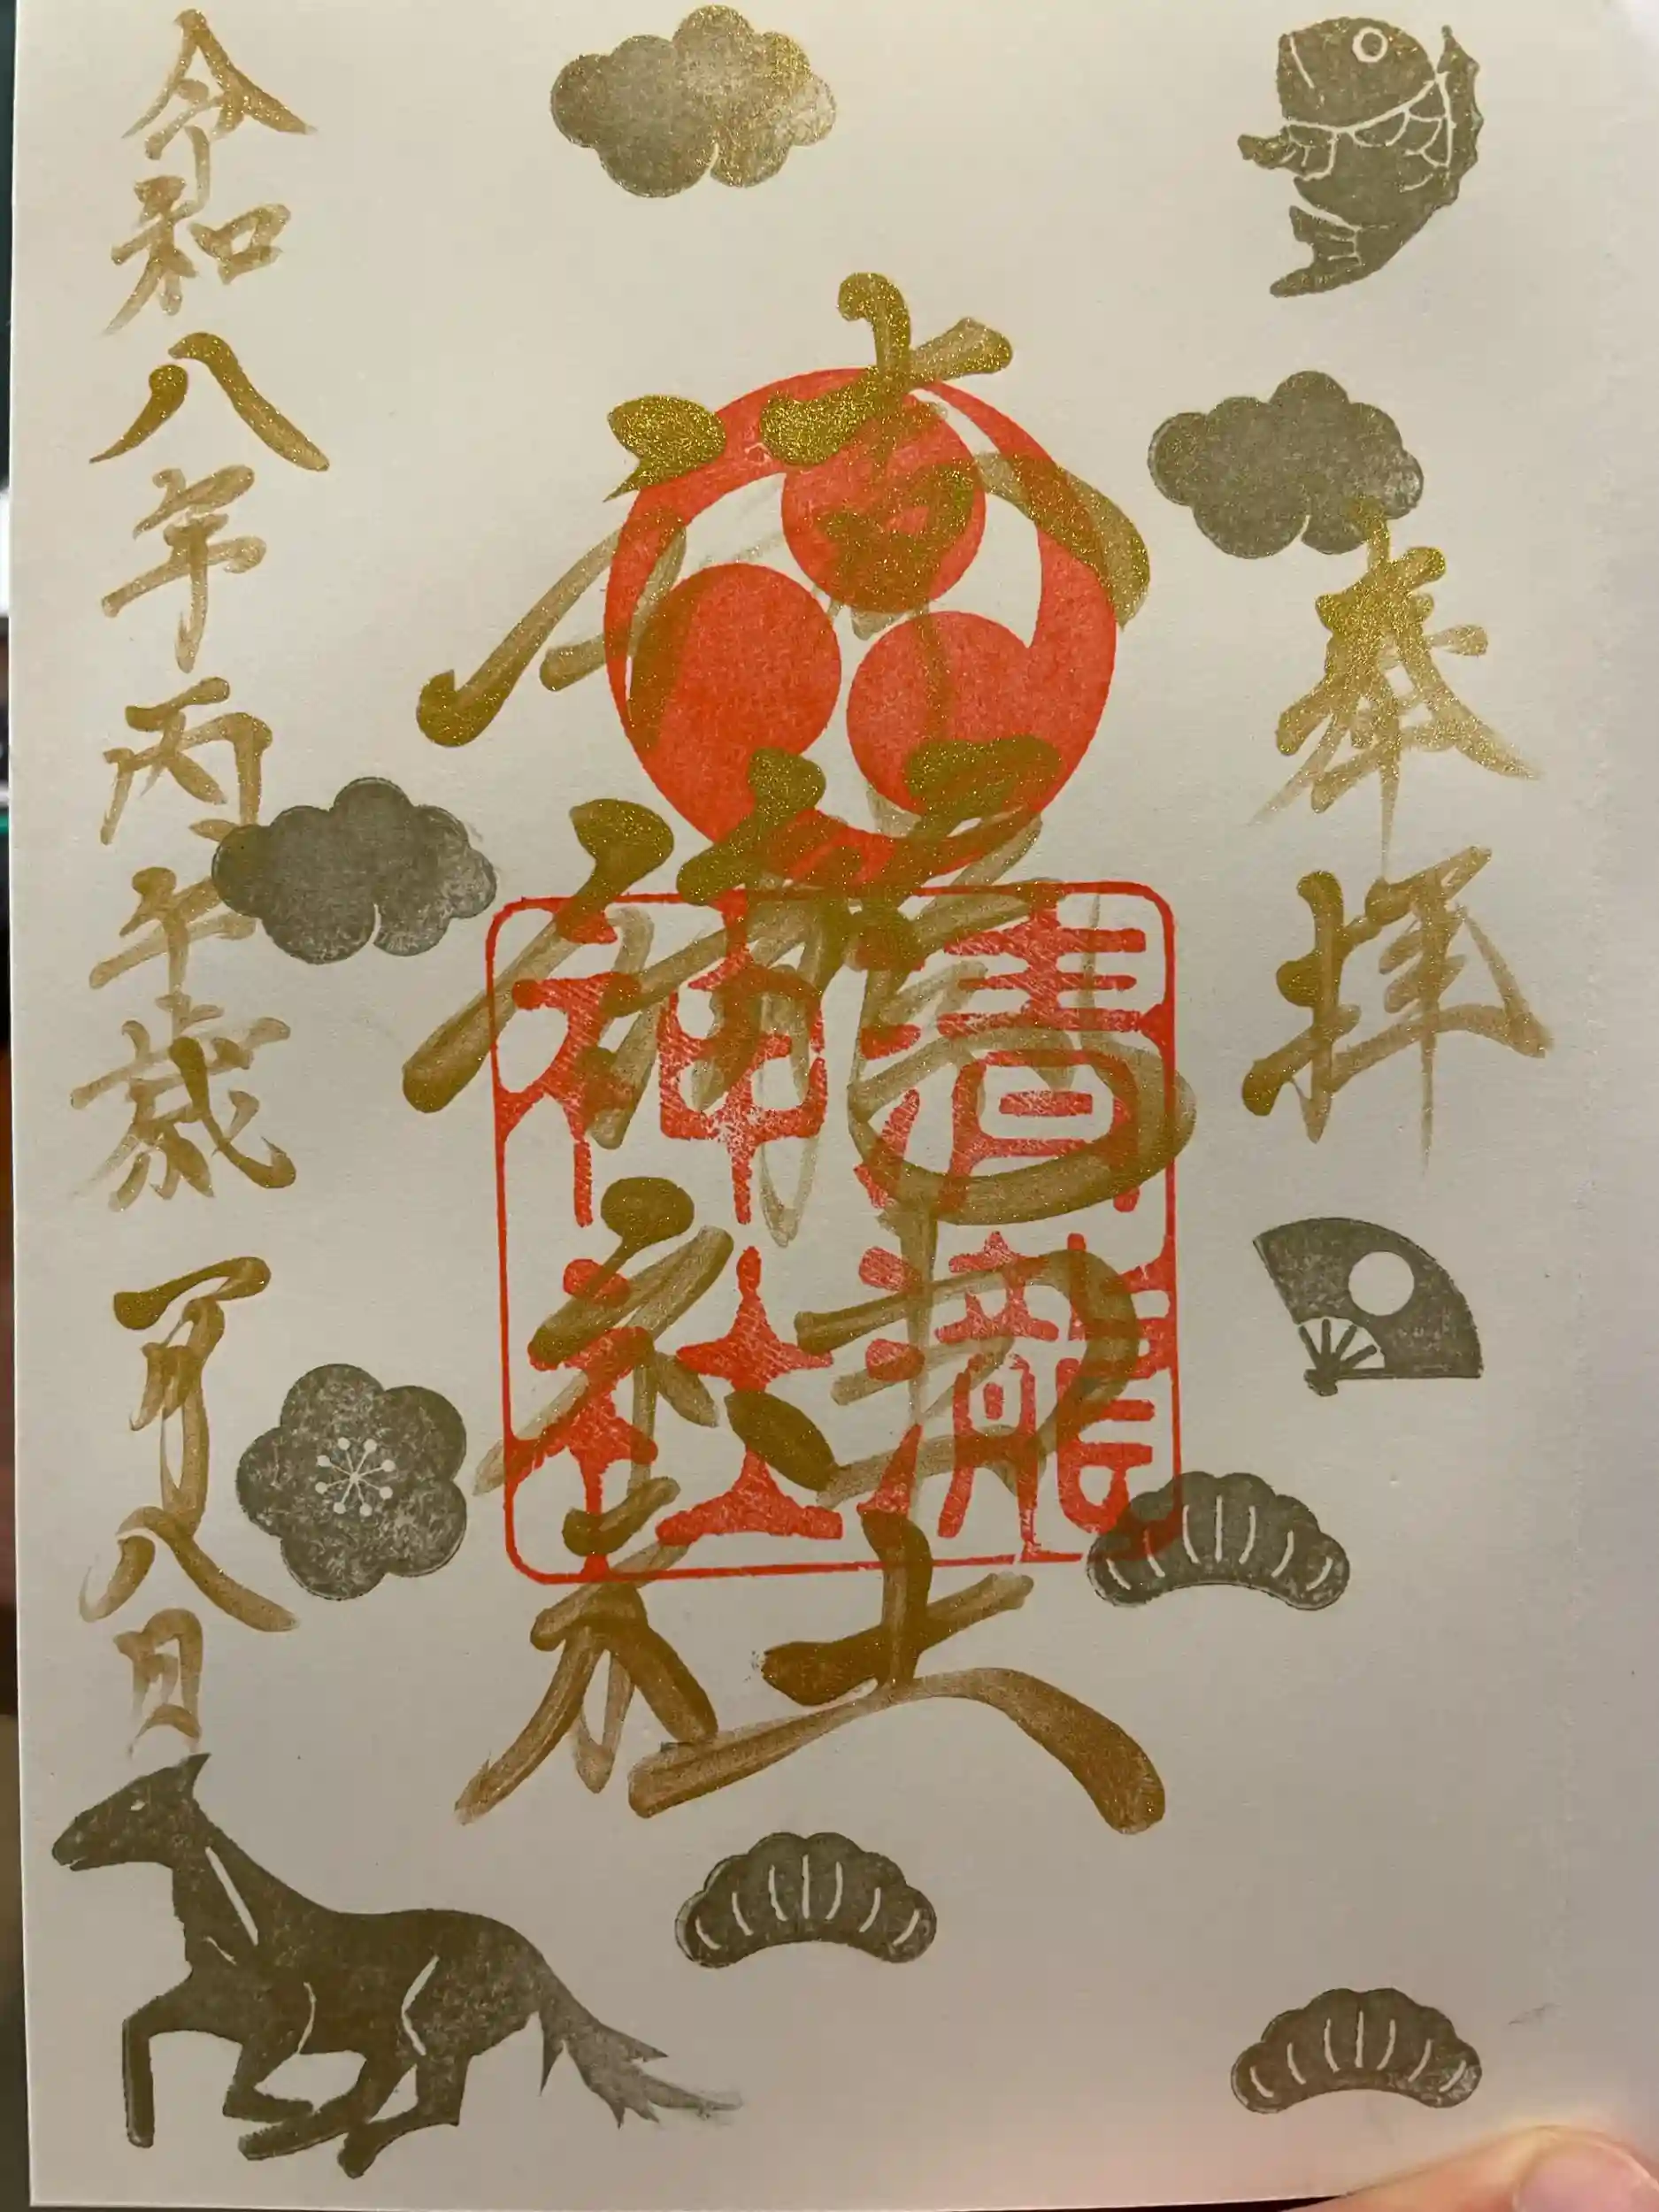 奉拝
清瀧神社
清瀧
神社
令和八年丙午歳 一月八日